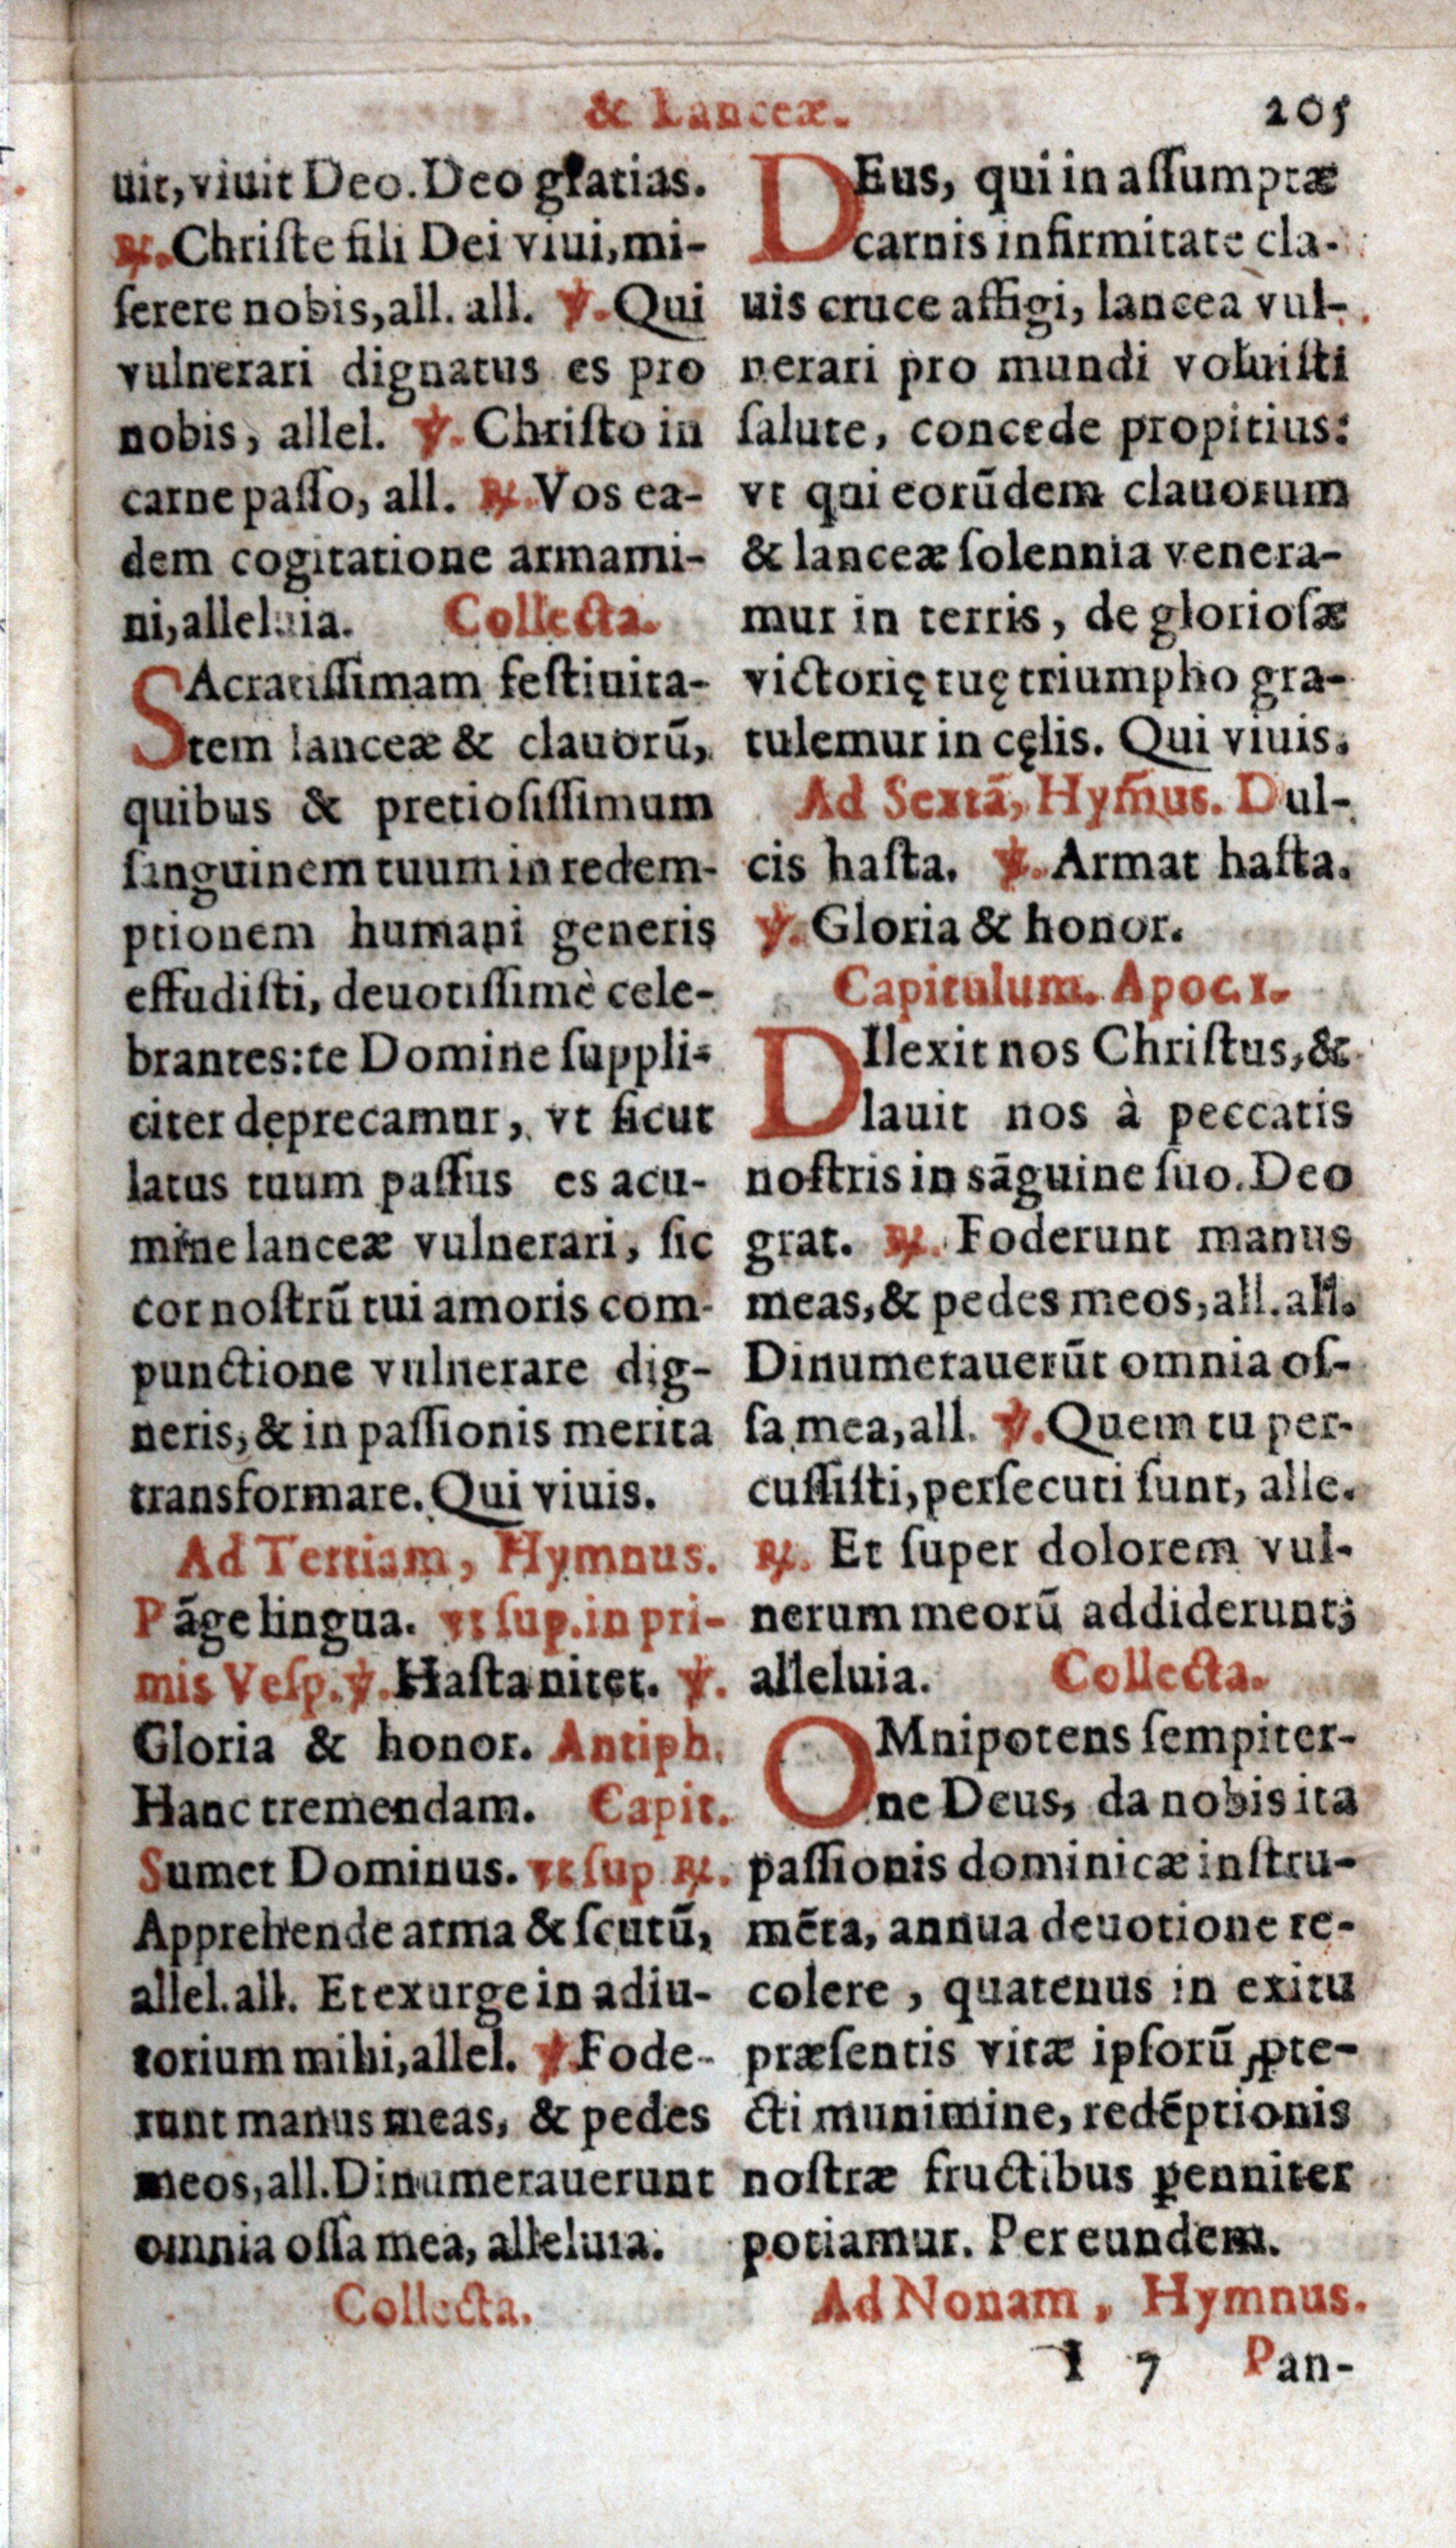 & Lanceæ. 205
uit, viuit Deo. Deo gratias.
℟. Chriſte fili Dei viui, mi-
ſerere nobis, all. all. ℣. Qui
vulnerari dignatus es pro
nobis, allel. ℣. Chriſto in
carne paſſo, all. ℟. Vos ea-
dem cogitatione armami-
ni, alleluia. Collecta.
SAcratiſſimam feſtiuita-
tem lanceæ & clauorū,
quibus & pretioſiſſimum
ſanguinem tuum in redem-
ptionem humani generis
effudiſti, deuotiſſimè cele-
brantes: te Domine ſuppli-
citer deprecamur, vt ſicut
latus tuum paſſus es acu-
mine lanceæ vulnerari, ſic
cor noſtrū tui amoris com-
punctione vulnerare dig-
neris, & in paſſionis merita
transformare. Qui viuis.
Ad Tertiam, Hymnus.
Pāge lingua. vt ſup. in pri-
mis Veſp. ℣. Haſta nitet. ℣.
Gloria & honor. Antiph.
Hanc tremendam. Capit.
Sumet Dominus. vt ſup ℟.
Apprehende arma & ſcutū,
allel. all. Et exurge in adiu-
torium mihi, allel. ℣. Fode-
runt manus meas, & pedes
meos, all. Dinumerauerunt
omnia oſſa mea, alleluia.
Collecta.
DEus, qui in aſſumptæ
carnis infirmitate cla-
uis cruce affigi, lancea vul-
nerari pro mundi voluiſti
ſalute, concede propitius:
vt qui eorūdem clauorum
& lanceæ ſolennia venera-
mur in terris, de glorioſæ
victorię tuę triumpho gra-
tulemur in cęlis. Qui viuis.
Ad Sextā, Hym̄us. Dul-
cis haſta. ℣. Armat haſta.
℣. Gloria & honor.
Capitulum. Apoc. 1.
DIlexit nos Chriſtus, &
lauit nos à peccatis
noſtris in sāguine ſuo. Deo
grat. ℟. Foderunt manus
meas, & pedes meos, all. all.
Dinumerauerūt omnia oſ-
ſa mea, all. ℣. Quem tu per-
cuſſiſti, perſecuti ſunt, alle.
℟. Et ſuper dolorem vul-
nerum meorū addiderunt;
alleluia. Collecta.
OMnipotens ſempiter-
ne Deus, da nobis ita
paſſionis dominicæ inſtru-
mēta, annua deuotione re-
colere, quatenus in exitu
præſentis vitæ ipſorū ꝓte-
cti munimine, redēptionis
noſtræ fructibus ꝑenniter
potiamur. Per eundem.
Ad Nonam, Hymnus.
I 7 Pan-